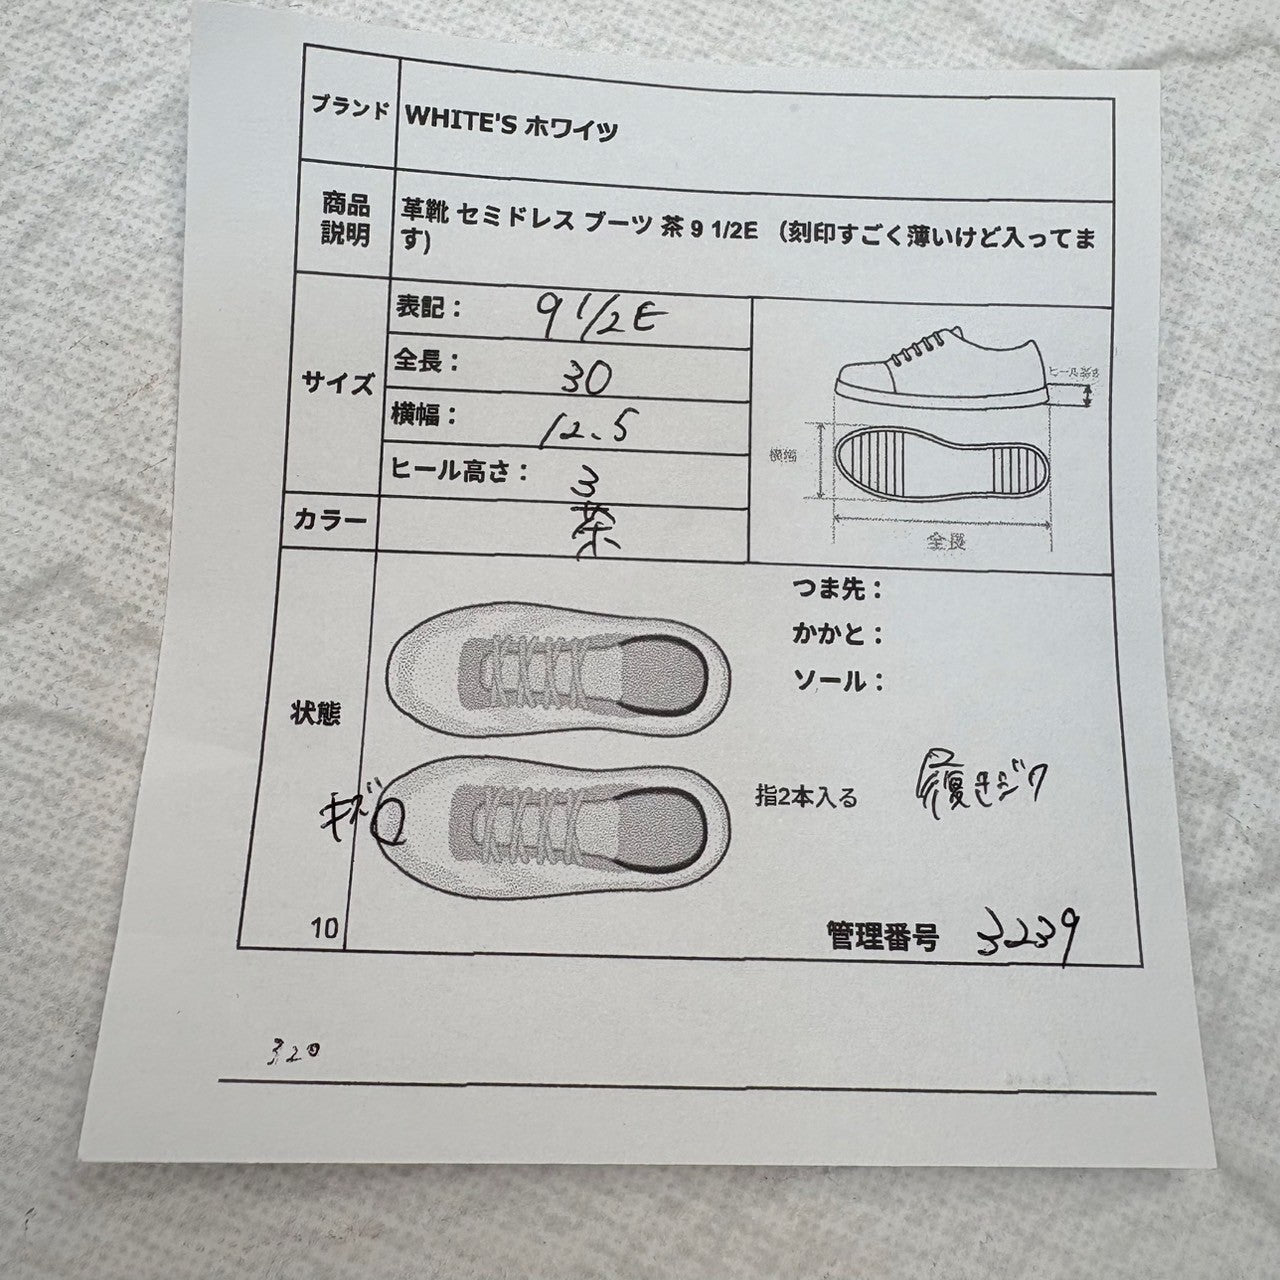 ブランド
WHITE'S ホワイツ
商品
説明
革靴 セミドレス ブーツ 茶 9 1/2E （刻印すごく薄いけど入ってま
す)
サイズ
表記： 9 1/2E
全長： 30
横幅： 12.5
ヒール高さ： 3
カラー 茶
ヒール高さ
横幅
全長
状態
つま先：
かかと：
ソール：
キズ
指2本入る
履きジワ
10
管理番号 3239
320